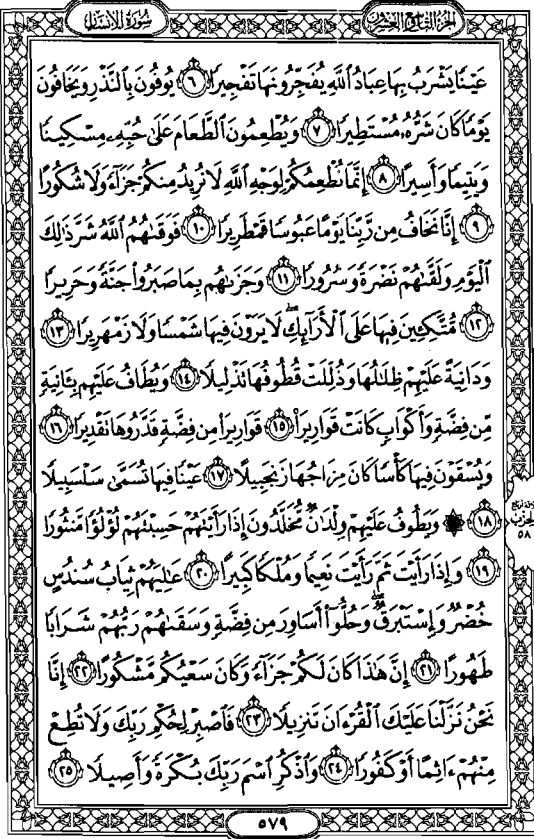 سُورَةُ الإنسَان
الجزء التاسع والعشرون
عَيْنًا يَشْرَبُ بِهَا عِبَادُ ٱللَّهِ يُفَجِّرُونَهَا تَفْجِيرًا ٦ يُوفُونَ بِٱلنَّذْرِ وَيَخَافُونَ
يَوْمًا كَانَ شَرُّهُۥ مُسْتَطِيرًا ٧ وَيُطْعِمُونَ ٱلطَّعَامَ عَلَىٰ حُبِّهِۦ مِسْكِينًا
وَيَتِيمًا وَأَسِيرًا ٨ إِنَّمَا نُطْعِمُكُمْ لِوَجْهِ ٱللَّهِ لَا نُرِيدُ مِنكُمْ جَزَآءً وَلَا شُكُورًا
٩ إِنَّا نَخَافُ مِن رَّبِّنَا يَوْمًا عَبُوسًا قَمْطَرِيرًا ١٠ فَوَقَىٰهُمُ ٱللَّهُ شَرَّ ذَٰلِكَ
ٱلْيَوْمِ وَلَقَّىٰهُمْ نَضْرَةً وَسُرُورًا ١١ وَجَزَىٰهُم بِمَا صَبَرُوا۟ جَنَّةً وَحَرِيرًا
١٢ مُّتَّكِـِٔينَ فِيهَا عَلَى ٱلْأَرَآئِكِ ۖ لَا يَرَوْنَ فِيهَا شَمْسًا وَلَا زَمْهَرِيرًا ١٣
وَدَانِيَةً عَلَيْهِمْ ظِلَٰلُهَا وَذُلِّلَتْ قُطُوفُهَا تَذْلِيلًا ١٤ وَيُطَافُ عَلَيْهِم بِـَٔانِيَةٍ
مِّن فِضَّةٍ وَأَكْوَابٍ كَانَتْ قَوَارِيرَا۠ ١٥ قَوَارِيرَا۟ مِن فِضَّةٍ قَدَّرُوهَا تَقْدِيرًا ١٦
وَيُسْقَوْنَ فِيهَا كَأْسًا كَانَ مِزَاجُهَا زَنجَبِيلًا ١٧ عَيْنًا فِيهَا تُسَمَّىٰ سَلْسَبِيلًا
١٨ ۞ وَيَطُوفُ عَلَيْهِمْ وِلْدَٰنٌ مُّخَلَّدُونَ إِذَا رَأَيْتَهُمْ حَسِبْتَهُمْ لُؤْلُؤًا مَّنثُورًا
١٩ وَإِذَا رَأَيْتَ ثَمَّ رَأَيْتَ نَعِيمًا وَمُلْكًا كَبِيرًا ٢٠ عَٰلِيَهُمْ ثِيَابُ سُندُسٍ
خُضْرٌ وَإِسْتَبْرَقٌ ۖ وَحُلُّوٓا۟ أَسَاوِرَ مِن فِضَّةٍ وَسَقَىٰهُمْ رَبُّهُمْ شَرَابًا
طَهُورًا ٢١ إِنَّ هَٰذَا كَانَ لَكُمْ جَزَآءً وَكَانَ سَعْيُكُم مَّشْكُورًا ٢٢ إِنَّا
نَحْنُ نَزَّلْنَا عَلَيْكَ ٱلْقُرْءَانَ تَنزِيلًا ٢٣ فَٱصْبِرْ لِحُكْمِ رَبِّكَ وَلَا تُطِعْ
مِنْهُمْ ءَاثِمًا أَوْ كَفُورًا ٢٤ وَٱذْكُرِ ٱسْمَ رَبِّكَ بُكْرَةً وَأَصِيلًا ٢٥
الحزب
٥٨
٥٧٩